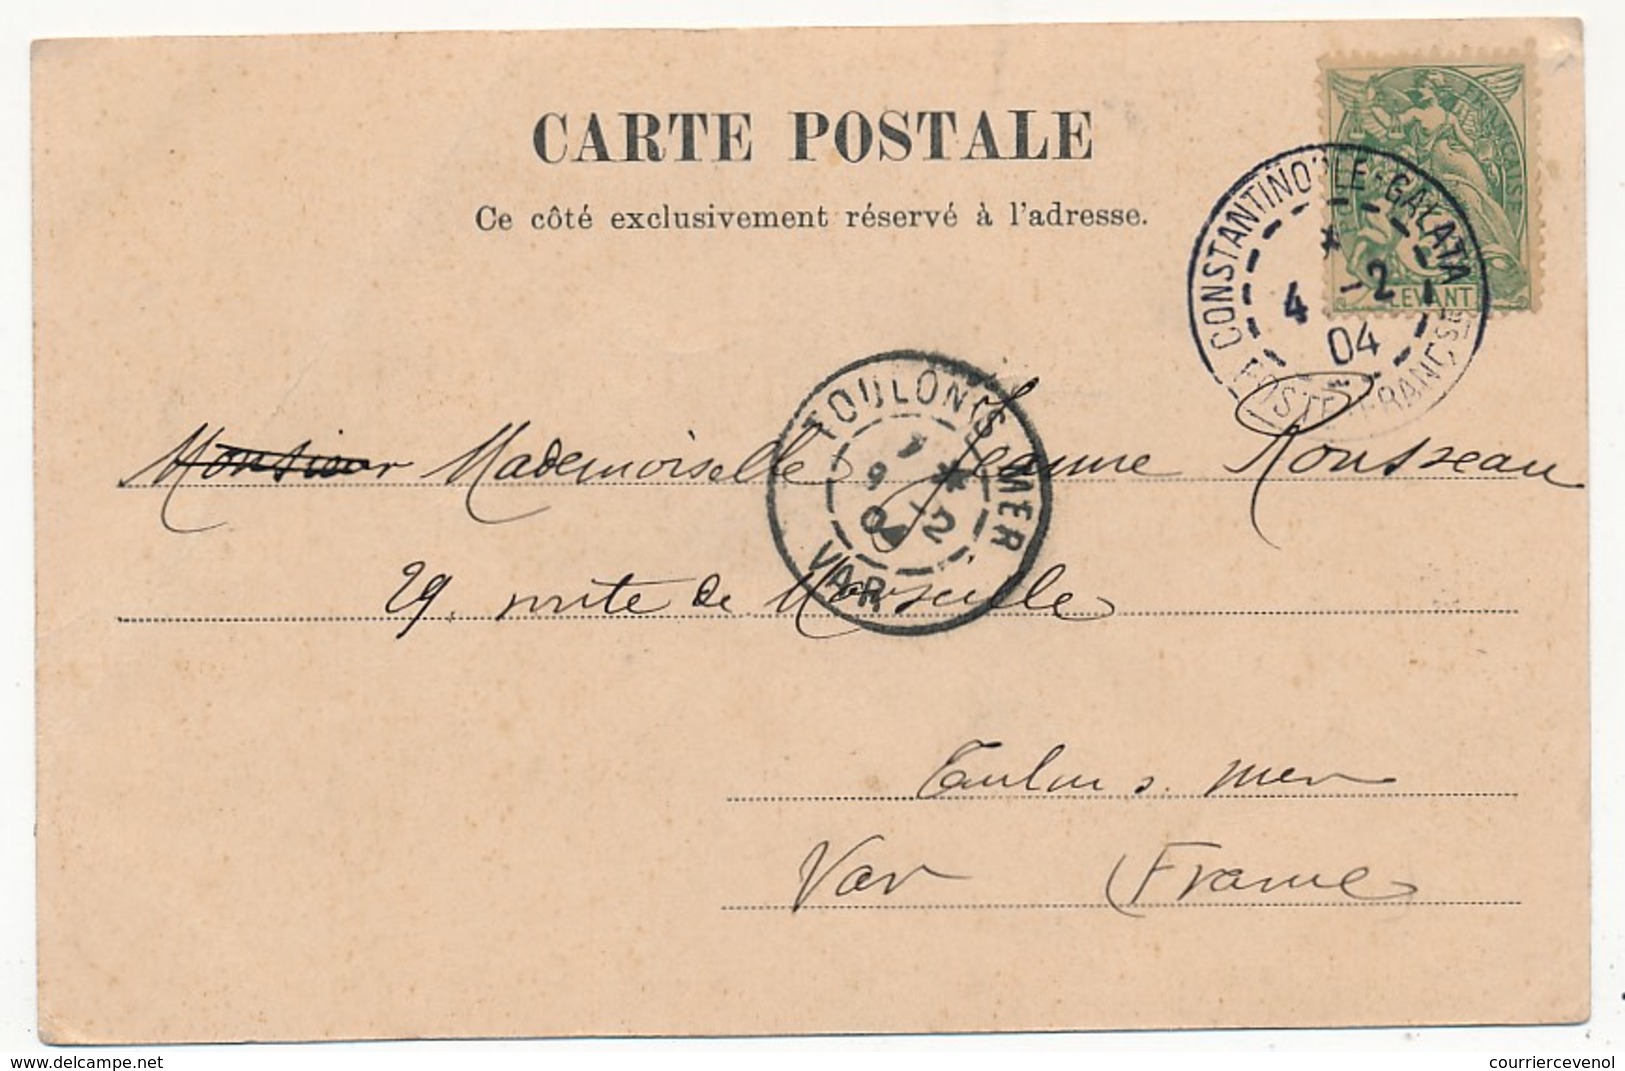 CARTE POSTALE
Ce côté exclusivement réservé à l'adresse.
CONSTANTINOPLE-GALATA
4 -2
04
POSTE FRANÇSE
LEVANT
TOULON S MER
9 -2
04
VAR
Monsieur Mademoiselle Jeanne Rousseau
29, route de Marseille
Toulon s. mer
Var (France
www.delcampe.net
courriercevenol